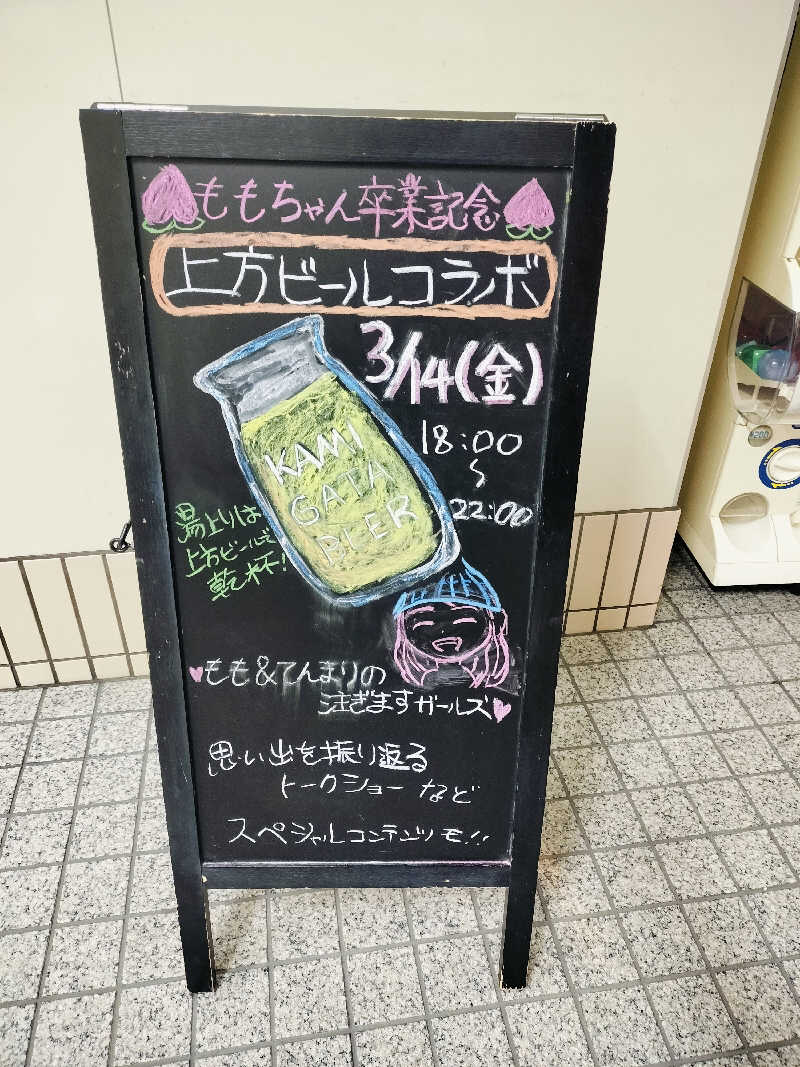 ももちゃん卒業記念
上方ビールコラボ
3/14(金)
18:00
〜
22:00
KAMI
GATA
BEER
湯上りは
上方ビールで
乾杯!
もも&てんまりの
注ぎますガールズ
思い出を振り返る
トークショーなど
スペシャルコンテンツも!!